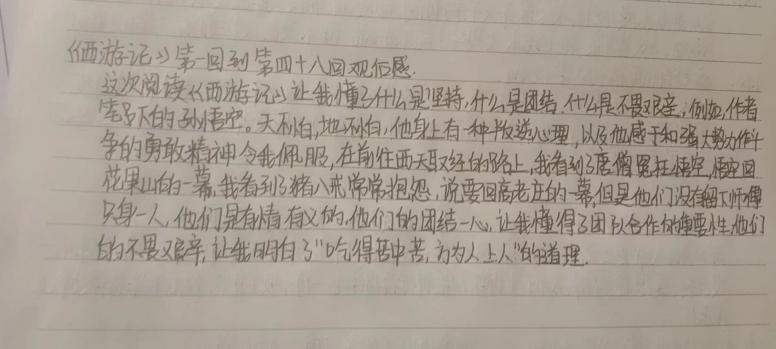 《西游记》第一回到第四十八回观后感.
这次阅读《西游记》让我懂了什么是坚持,什么是团结,什么是不畏艰辛,例如,作者
笔下的孙悟空。天不怕,地不怕,他身上有一种叛逆心理,以及他感于和强大势力作斗
争的勇敢精神令我佩服,在前往西天取经的路上,我看到了唐僧冤枉悟空,悟空回
花果山的一幕,我看到了猪八戒常常抱怨.说要回高老庄的一幕,但是他们没有留下师傅
只身一人,他们是有情有义的,他们的团结一心,让我懂得了团队合作的重要性,他们
的不畏艰辛,让我明白了"吃得苦中苦,方为人上人"的道理.